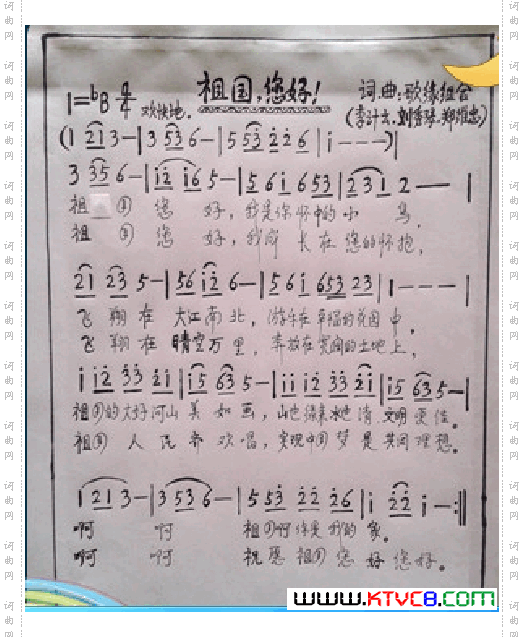 祖国,您好!
1=bB 4/4 欢快地.
词.曲:歌缘组合
(1 21 3-|3 53 6-|5 53 2 2 6|i---)|
3 35 6-|i2 i6 5-|5 6 i 6 53|2 3 1 2--|
祖 您 好,我是你怀中的小 鸟.
祖 您 好,我成 长在您的怀抱.
21 23 5-|56 i2 6-|56 i 653 23|1---|
飞 翔在 大江南北,游乐在幸福的花园中.
飞 翔在 晴空万里,奔放在 的土地上.
i i2 33 2i|i5 63 5-|ii i2 33 2i|i5 63 5-|
祖国的大好河山美 如画,山也 水也清 文明更佳。
祖国 人民齐欢唱,实现中国梦是共同理想。
1 21 3-|3 53 6-|5 53 22 26|i 22 i-:||
啊 啊 祖国啊你是我的 家.
啊 啊 祝愿祖国您 好您好。
www.KTVC8.com
词曲网